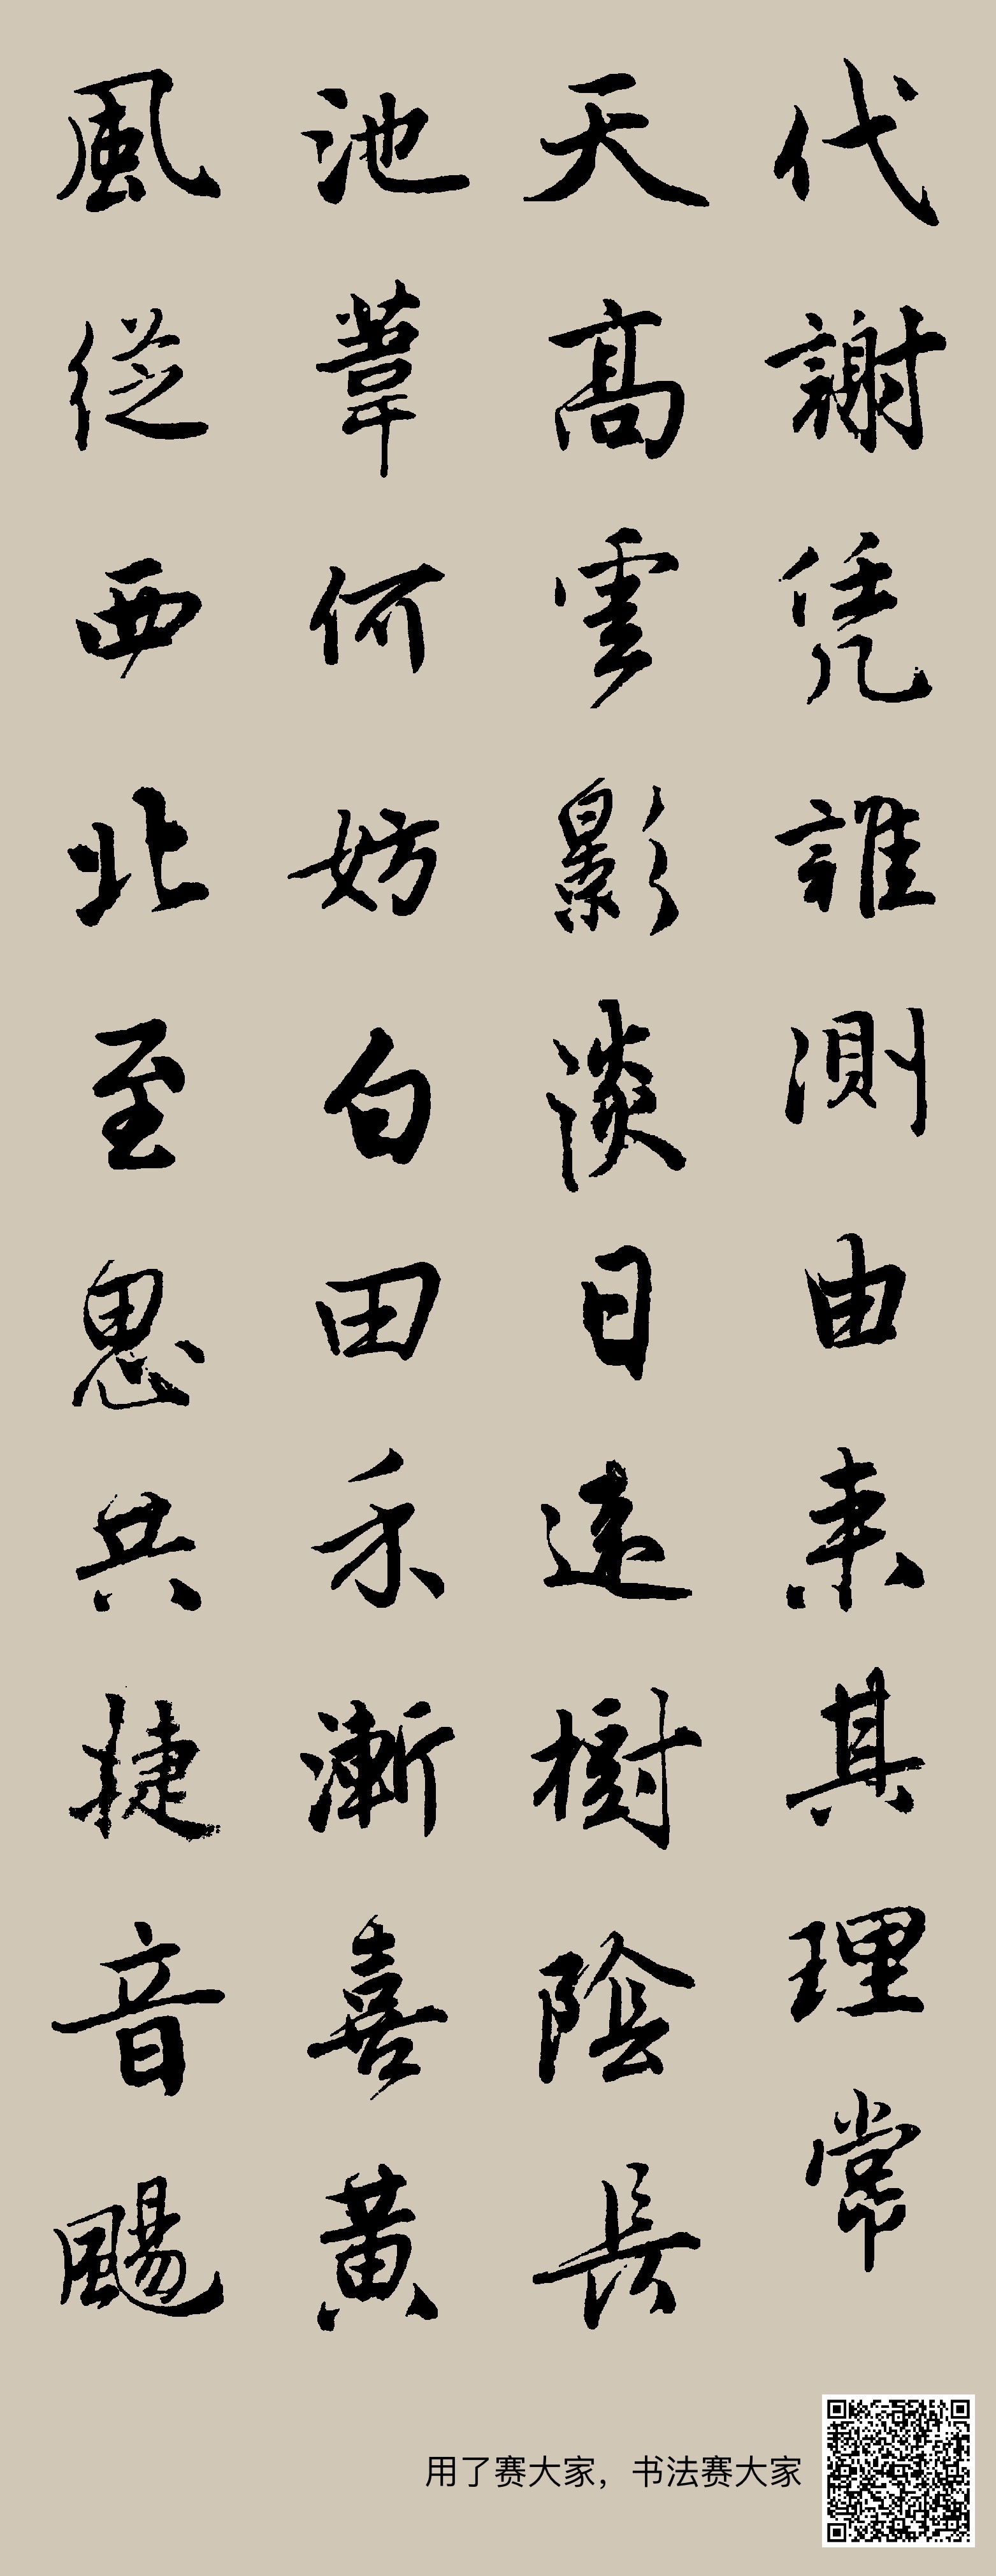 代謝凭誰測由来其理常
天高雲影淡日遠樹陰長
池葦何妨白田禾漸喜黃
風從西北至思共捷音颺
用了赛大家，书法赛大家